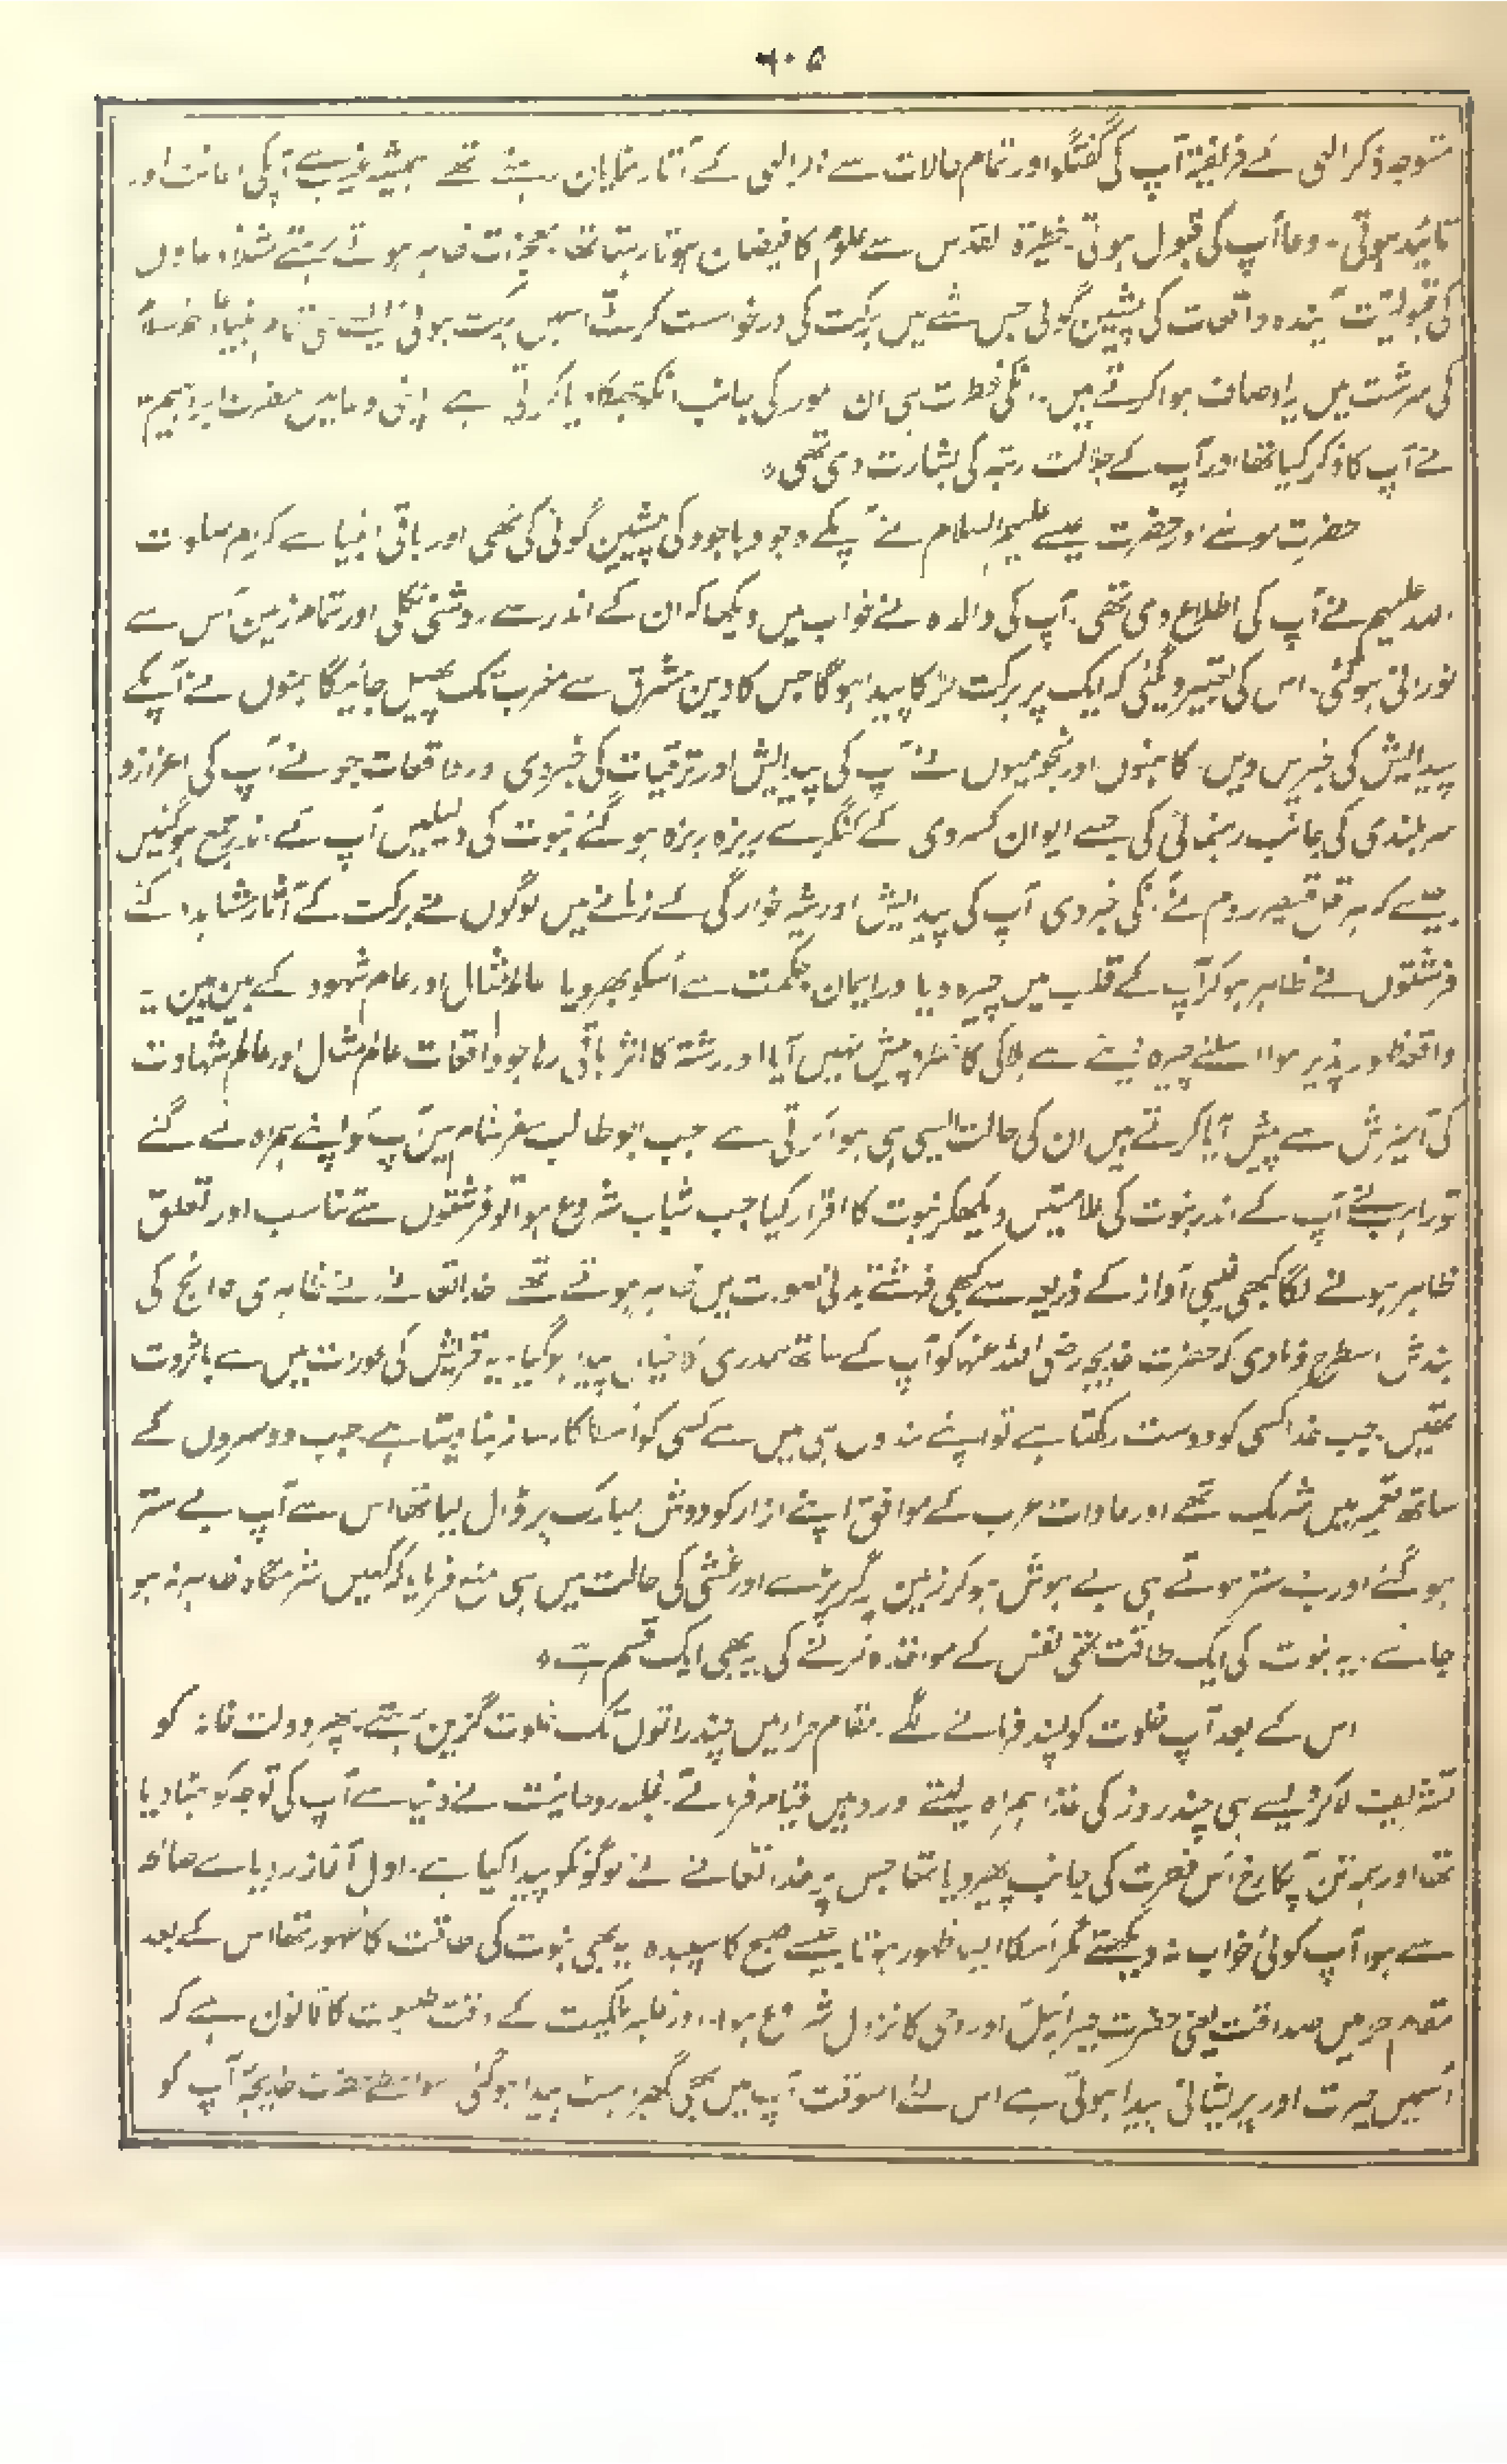 ۶۰۵
متوجہ ذکر الٰہی کے فریفتہ آپ کی گفتگو اور تمام حالات سے ذکر الٰہی کے آثار نمایاں رہتے تھے ہمیشہ غیب سے آپکی اعانت اور
تائید ہوتی۔ دعا آپ کی قبول ہوتی۔ خطیرۃ القدس سے علوم کا فیضان ہوتا رہتا تھا۔ معجزات ظاہر ہوتے رہتے مثلاً دعاؤں
کی قبولیت آیندہ واقعات کی پیشین گوئی جس شے میں برکت کی درخواست کرتے اسمیں برکت ہوتی
کی سرشت میں یہ اوصاف ہوا کرتے ہیں۔ انکی فطرت ہی ان امور کی جانب انکو جھکا دیا کرتی ہے اپنی دعا میں حضرت ابراہیم
نے آپ کا ذکر کیا تھا اور آپ کے جلالت رتبہ کی بشارت دی تھی۔
حضرت موسٰے اور حضرت عیسے علیہما السلام نے آپکے وجود باجود کی پیشین گوئی کی تھی اور باقی انبیاے کرام صلوات
اللہ علیہم نے آپ کی اطلاع دی تھی۔ آپ کی والدہ نے خواب میں دیکھا کہ ان کے اندر سے روشنی نکلی اور تمام زمین اُس سے
نورانی ہوگئی۔ اس کی تعبیر دیگئی کہ ایک پر برکت لڑکا پیدا ہوگا جس کا دین مشرق سے مغرب تک پھیل جائیگا جنوں نے آپکے
پیدایش کی خبریں دیں۔ کاہنوں اور نجومیوں نے آپ کی پیدایش اور ترقیات کی خبر دی اور واقعات جو نے آپ کی اعزاز و
سر بلندی کی جانب رہنمائی کی جیسے ایوان کسروی کے کنگرے ریزہ ریزہ ہو گئے نبوت کی دلیلیں آپ کے اندر جمع ہوگئیں
جیسے کہ ہرقل قیصر روم نے انکی خبر دی آپ کی پیدایش اور شیر خوارگی کے زمانے میں لوگوں نے برکت کے آثار مشاہدہ کئے
فرشتوں نے ظاہر ہو کر آپ کے قلب میں چیرہ دیا اور ایمان و حکمت سے اُسکو بھر دیا عالم مثال اور عالم شہود کے بین بین یہ
واقعہ ظہور پذیر ہوا اسلئے چیرہ دینے سے ہلاکی کا خطرہ پیش نہیں آیا اور رشتہ کا اثر باقی رہا جو واقعات عالم مثال اور عالم شہادت
کی آمیزش سے پیش آیا کرتے ہیں ان کی حالت ایسی ہی ہوا کرتی ہے جب ابو طالب سفر شام میں آپ کو اپنے ہمراہ لے گئے
تو راہب نے آپ کے اندر نبوت کی علامتیں دیکھکر نبوت کا اقرار کیا جب شباب شروع ہوا تو فرشتوں سے تناسب اور تعلق
ظاہر ہونے لگا کبھی غیبی آواز کے ذریعہ سے کبھی فرشتے بدنی صورت میں ظاہر ہوتے تھے خدا تعالے نے ظاہری حوائج کی
بندش اسطرح فرمادی کہ حضرت خدیجہ رضی اللہ عنہا کو آپ کے ساتھ ہمدردی کا خیال پیدا ہوگیا۔ یہ قریش کی عورات میں سے باثروت
تھیں۔ جب خدا کسی کو دوست رکھتا ہے تو اپنے بندوں ہی میں سے کسی کو اُسکا کارساز بنا دیتا ہے۔ جب دوسروں کے
ساتھ تعمیر میں شریک تھے اور عادات عرب کے موافق اپنے ازار کو دوش مبارک پر ڈال لیا تھا اس سے آپ بے ستر
ہوگئے اور بے ستر ہوتے ہی بے ہوش ہو کر زمین پر گر پڑے اور غشی کی حالت میں ہی منع فرمایا کہ کہیں شرمگاہ ظاہر نہ ہو
جائے۔ یہ نبوت کی ایک طاقت تھی نفس کے مواخذہ کرنے کی یہ بھی ایک قسم ہے۔
اس کے بعد آپ خلوت کو پسند فرمانے لگے۔ مقام حرا میں چند راتوں تک خلوت گزین رہتے۔ پھر دولت خانہ کو
تشریف لا کر ویسے ہی چند روز کی غذا ہمراہ لیتے اور وہیں قیام فرماتے۔ غلبہ روحانیت نے دنیا سے آپ کی توجہ کو ہٹا دیا
تھا اور ہمہ تن آپکا رخ اُس فطرت کی جانب پھیر دیا تھا جس پر خدا تعالے نے لوگونکو پیدا کیا ہے۔ اول آغاز رویاے صالحہ
سے ہوا آپ کوئی خواب نہ دیکھتے مگر اُسکا ایسا ظہور ہوتا جیسے صبح کا سپیدہ یہ بھی نبوت کی طاقت کا ظہور تھا اس کے بعد
مقام حرا میں صداقت یعنی حضرت جبرائیل اور وحی کا نزول شروع ہوا۔ اور غلبہ ملکیت کے وقت طبیعت کا قانون ہے کہ
اُسمیں حیرت اور پریشانی پیدا ہوتی ہے اس لئے اسوقت آپ میں بھی گھبراہٹ پیدا ہو گئی حضرت خدیجہ آپ کو